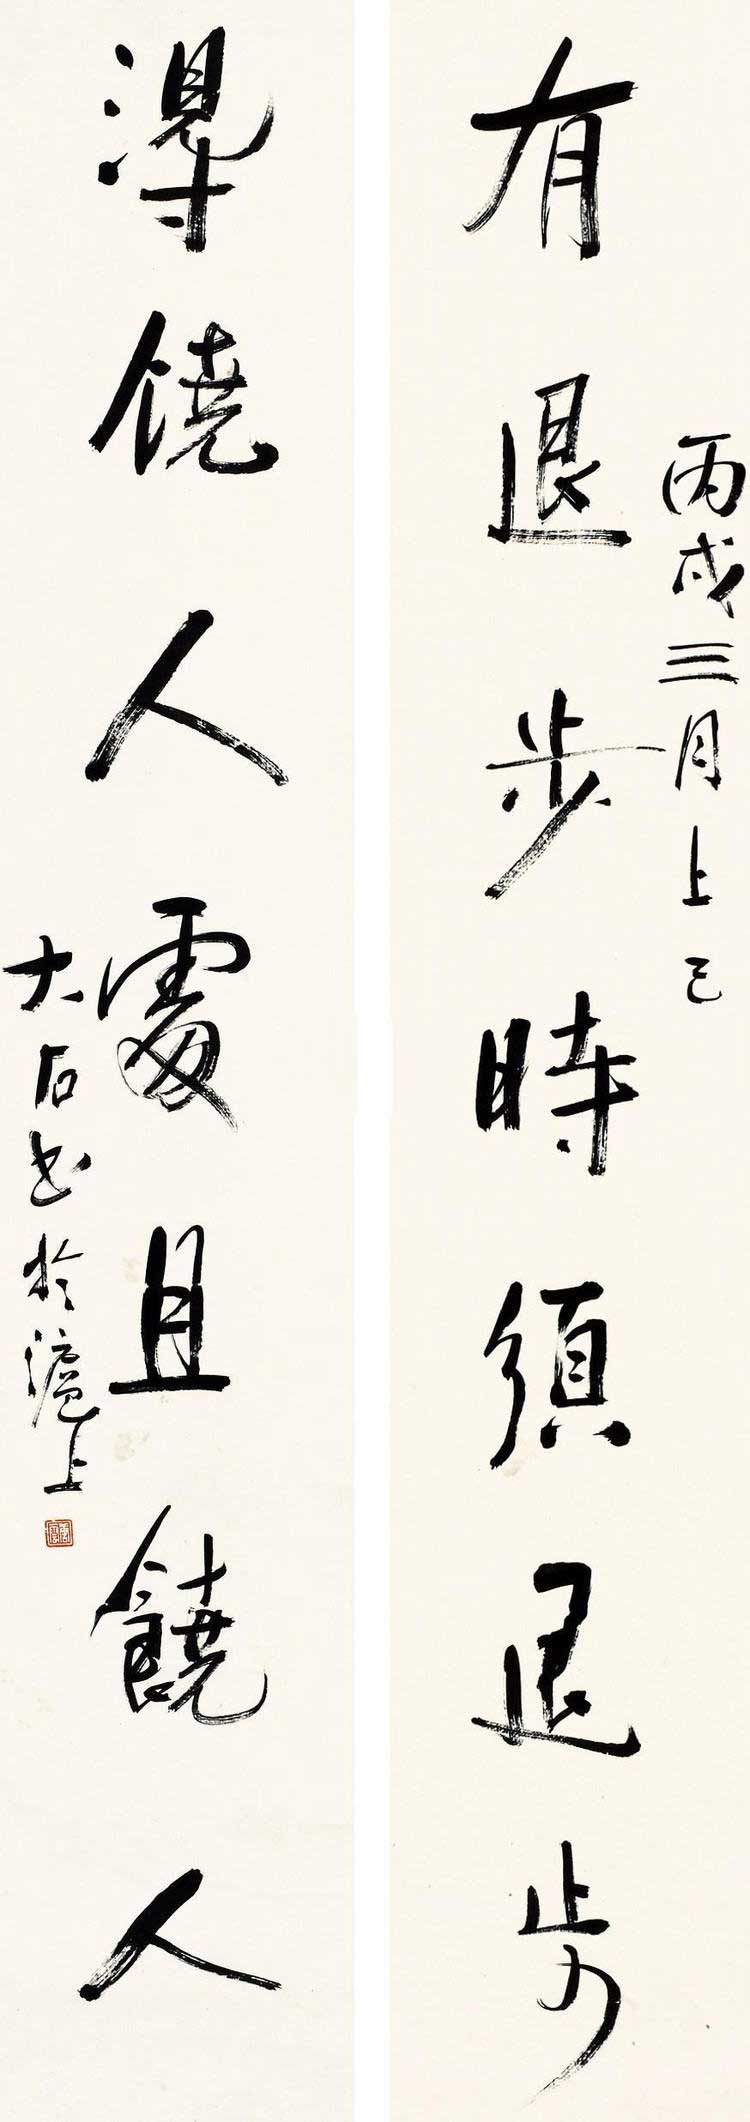 有退步時須退步
丙戌三月上巳
得饒人處且饒人
大石書於滬上